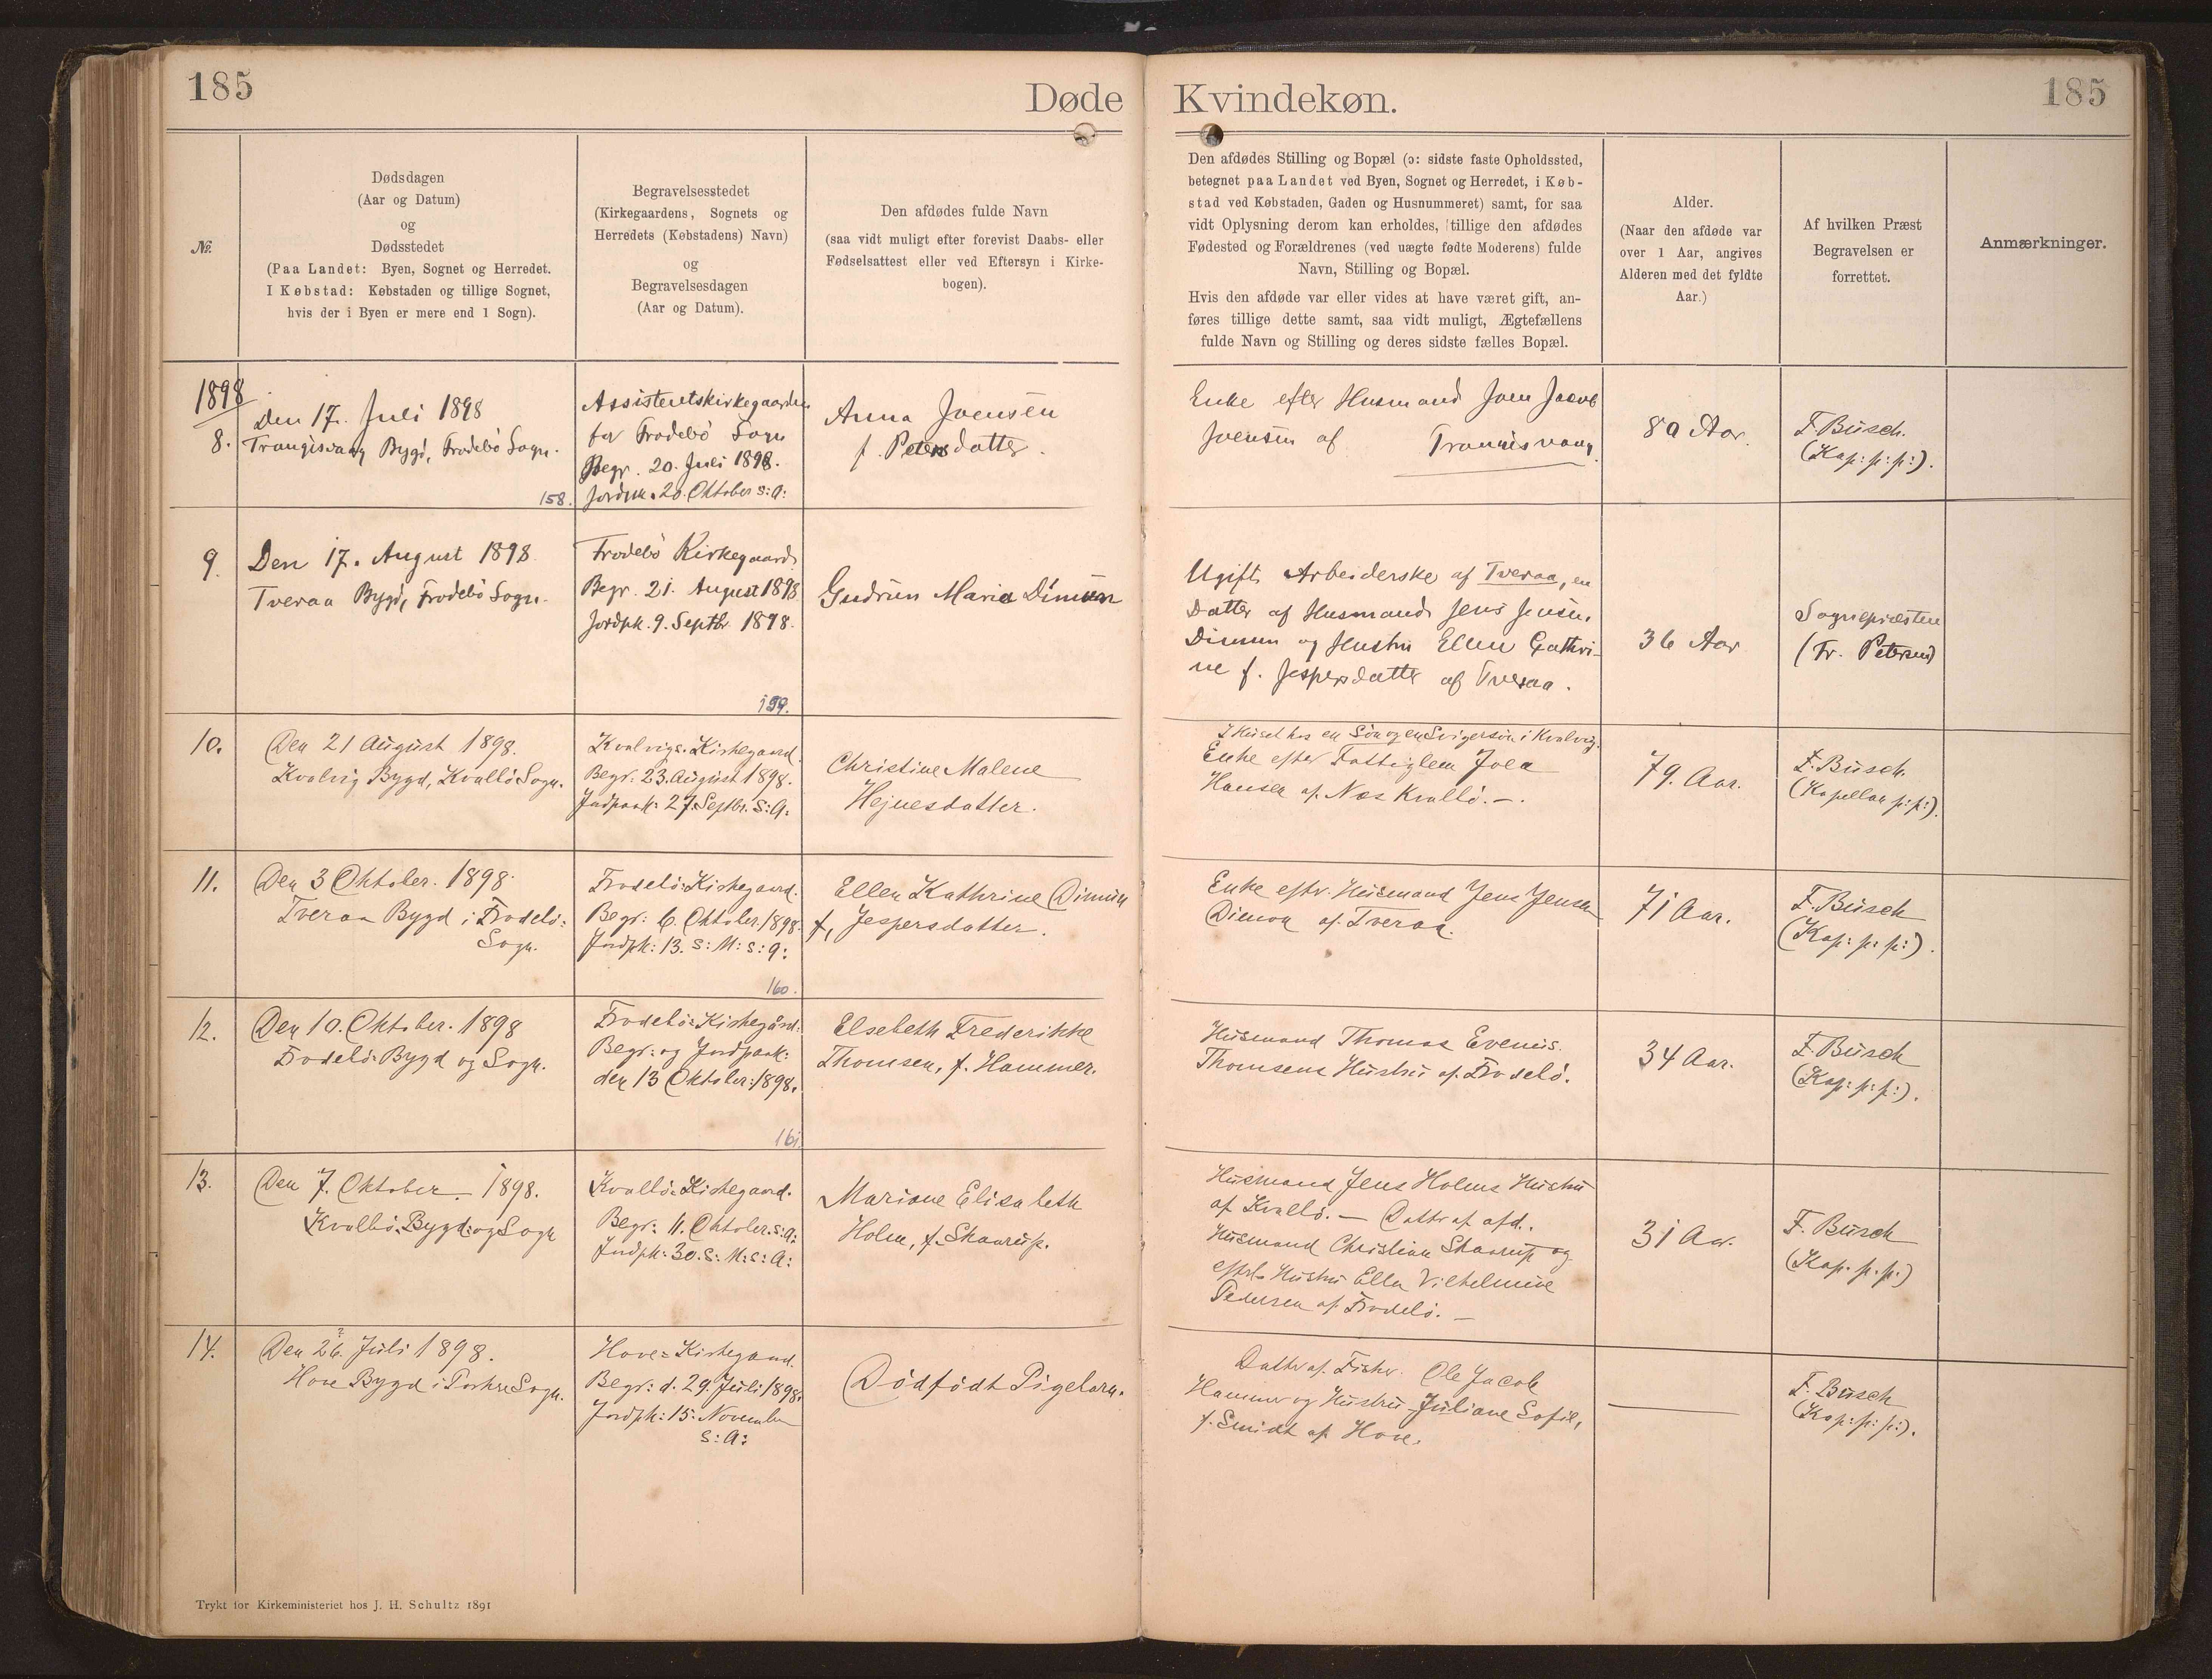 185
Døde
Kvindekøn.
185
№.
Dødsdagen
(Aar og Datum)
og
Dødsstedet
(Paa Landet: Byen, Sognet og Herredet.
I Købstad: Købstaden og tillige Sognet,
hvis der i Byen er mere end 1 Sogn).
Begravelsesstedet
(Kirkegaardens, Sognets og
Herredets (Købstadens) Navn)
og
Begravelsesdagen
(Aar og Datum).
Den afdødes fulde Navn
(saa vidt muligt efter forevist Daabs- eller
Fødselsattest eller ved Eftersyn i Kirke-
bogen).
Den afdødes Stilling og Bopæl (ɔ: sidste faste Opholdssted,
betegnet paa Landet ved Byen, Sognet og Herredet, i Køb-
stad ved Købstaden, Gaden og Husnummeret) samt, for saa
vidt Oplysning derom kan erholdes, tillige den afdødes
Fødested og Forældrenes (ved uægte fødte Moderens) fulde
Navn, Stilling og Bopæl.
Hvis den afdøde var eller vides at have været gift, an-
føres tillige dette samt, saa vidt muligt, Ægtefællens
fulde Navn og Stilling og deres sidste fælles Bopæl.
Alder.
(Naar den afdøde var
over 1 Aar, angives
Alderen med det fyldte
Aar.)
Af hvilken Præst
Begravelsen er
forrettet.
Anmærkninger.
1898
8.
Den 17. Juli 1898
Trangisvaag Bygd, Frodebö Sogn.
158.
Assistentskirkegaarden
for Frodebö Sogn
Begr. 20. Juli 1898.
Jordpk. 20. Oktober s: a:
Anna Joensen
f. Petersdatter.
Enke efter Husmand Joen Jacob
Joensen af Trangisvaag.
80 Aar.
F. Busch.
(Kap: p: p:).
9.
Den 17. August 1898
Tveraa Bygd, Frodebö Sogn.
Frodebö Kirkegaard.
Begr. 21. August 1898
Jordpk. 9. Septbr. 1898.
159.
Gudrun Maria Dimun
Ugift Arbeiderske af Tveraa, en
Datter af Husmand Jens Jensen
Dimun og Hustru Ellen Cathri-
ne f. Jespersdatter af Tveraa.
36 Aar
Sognepræsten
(Fr. Petersen)
10.
Den 21 August 1898.
Kvalvig Bygd, Kvalbö Sogn.
Kvalvigs Kirkegaard.
Begr: 23. August 1898.
Jordpaak: 27. Septbr. s: a:
Christine Malene
Hejnesdatter.
I Huset hos en Sön og en Svigersön i Kvalvig.
Enke efter Fattiglem Joen
Hansen af Næs Kvalbö. —.
79. Aar.
F. Busch.
(Kapellan p: p:).
11.
Den 3 Oktober. 1898.
Tveraa Bygd i Frodebö:
Sogn.
Frodebö: Kirkegaard.
Begr: 6. Oktober. 1898.
Jordpk: 13. s: M: s: a:
160.
Ellen Kathrine Dimun
f. Jespersdatter.
Enke eftr. Husmand Jens Jensen
Dimon af Tveraa.
71 Aar.
F. Busch
(Kap: p: p:).
12.
Den 10. Oktober. 1898
Frodebö: Bygd og Sogn.
Frodebö: Kirkegård.
Begr: og Jordpaak:
den 13 Oktober: 1898.
161.
Elsebeth Frederikke
Thomsen, f. Hammer.
Husmand Thomas Evenus.
Thomsens Hustru af Frodebö.
34 Aar.
F. Busch
(Kap: p: p:).
13.
Den 7. Oktober. 1898.
Kvalbö: Bygd: og Sogn
Kvalbö: Kirkegaard.
Begr: 11. Oktober. s: a:
Jordpk: 30. s: M: s: A:
Mariane Elisabeth
Holm, f. Skaarup.
Husmand Jens Holms Hustru
af Kvalbö. — Datter af afd.
Husmand Christian Skaarup og
eftrl. Hustru Ellen Vilhelmine
Pedersen af Frodebö. —
31 Aar.
F. Busch
(Kap. p. p.)
14.
Den 26. Juli 1898.
Hove Bygd i Porkere Sogn.
Hove: Kirkegaard.
Begr: d. 29. Juli 1898.
Jordpk: 15. November
s: A:
Dödfödt Pigebarn.
Datter af Fisker. Ole Jacob
Hammer og Hustru Juliane Sofie,
f. Smidt af Hove.
F. Busch
(Kap: p: p:).
Trykt for Kirkeministeriet hos J. H. Schultz 1891